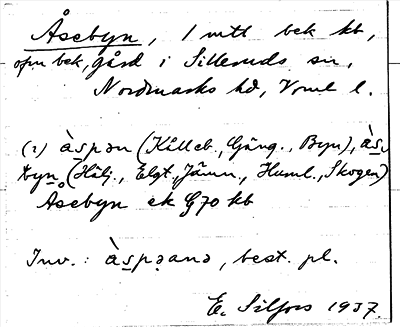 Åsebyn, 1 mtt bek kb,
opn bek, gård i Silleruds sn,
Nordmarks hd, Vrml l.
(2) às̲pən (Kålleb., Gäng., Byn), às̲
byn (Hölj., Elgt, Jämn., Huml., Skogen)
Åsebyn ek G70 kb
Inv.: às̲pəanə, best. pl.
E. Silfors 1937.